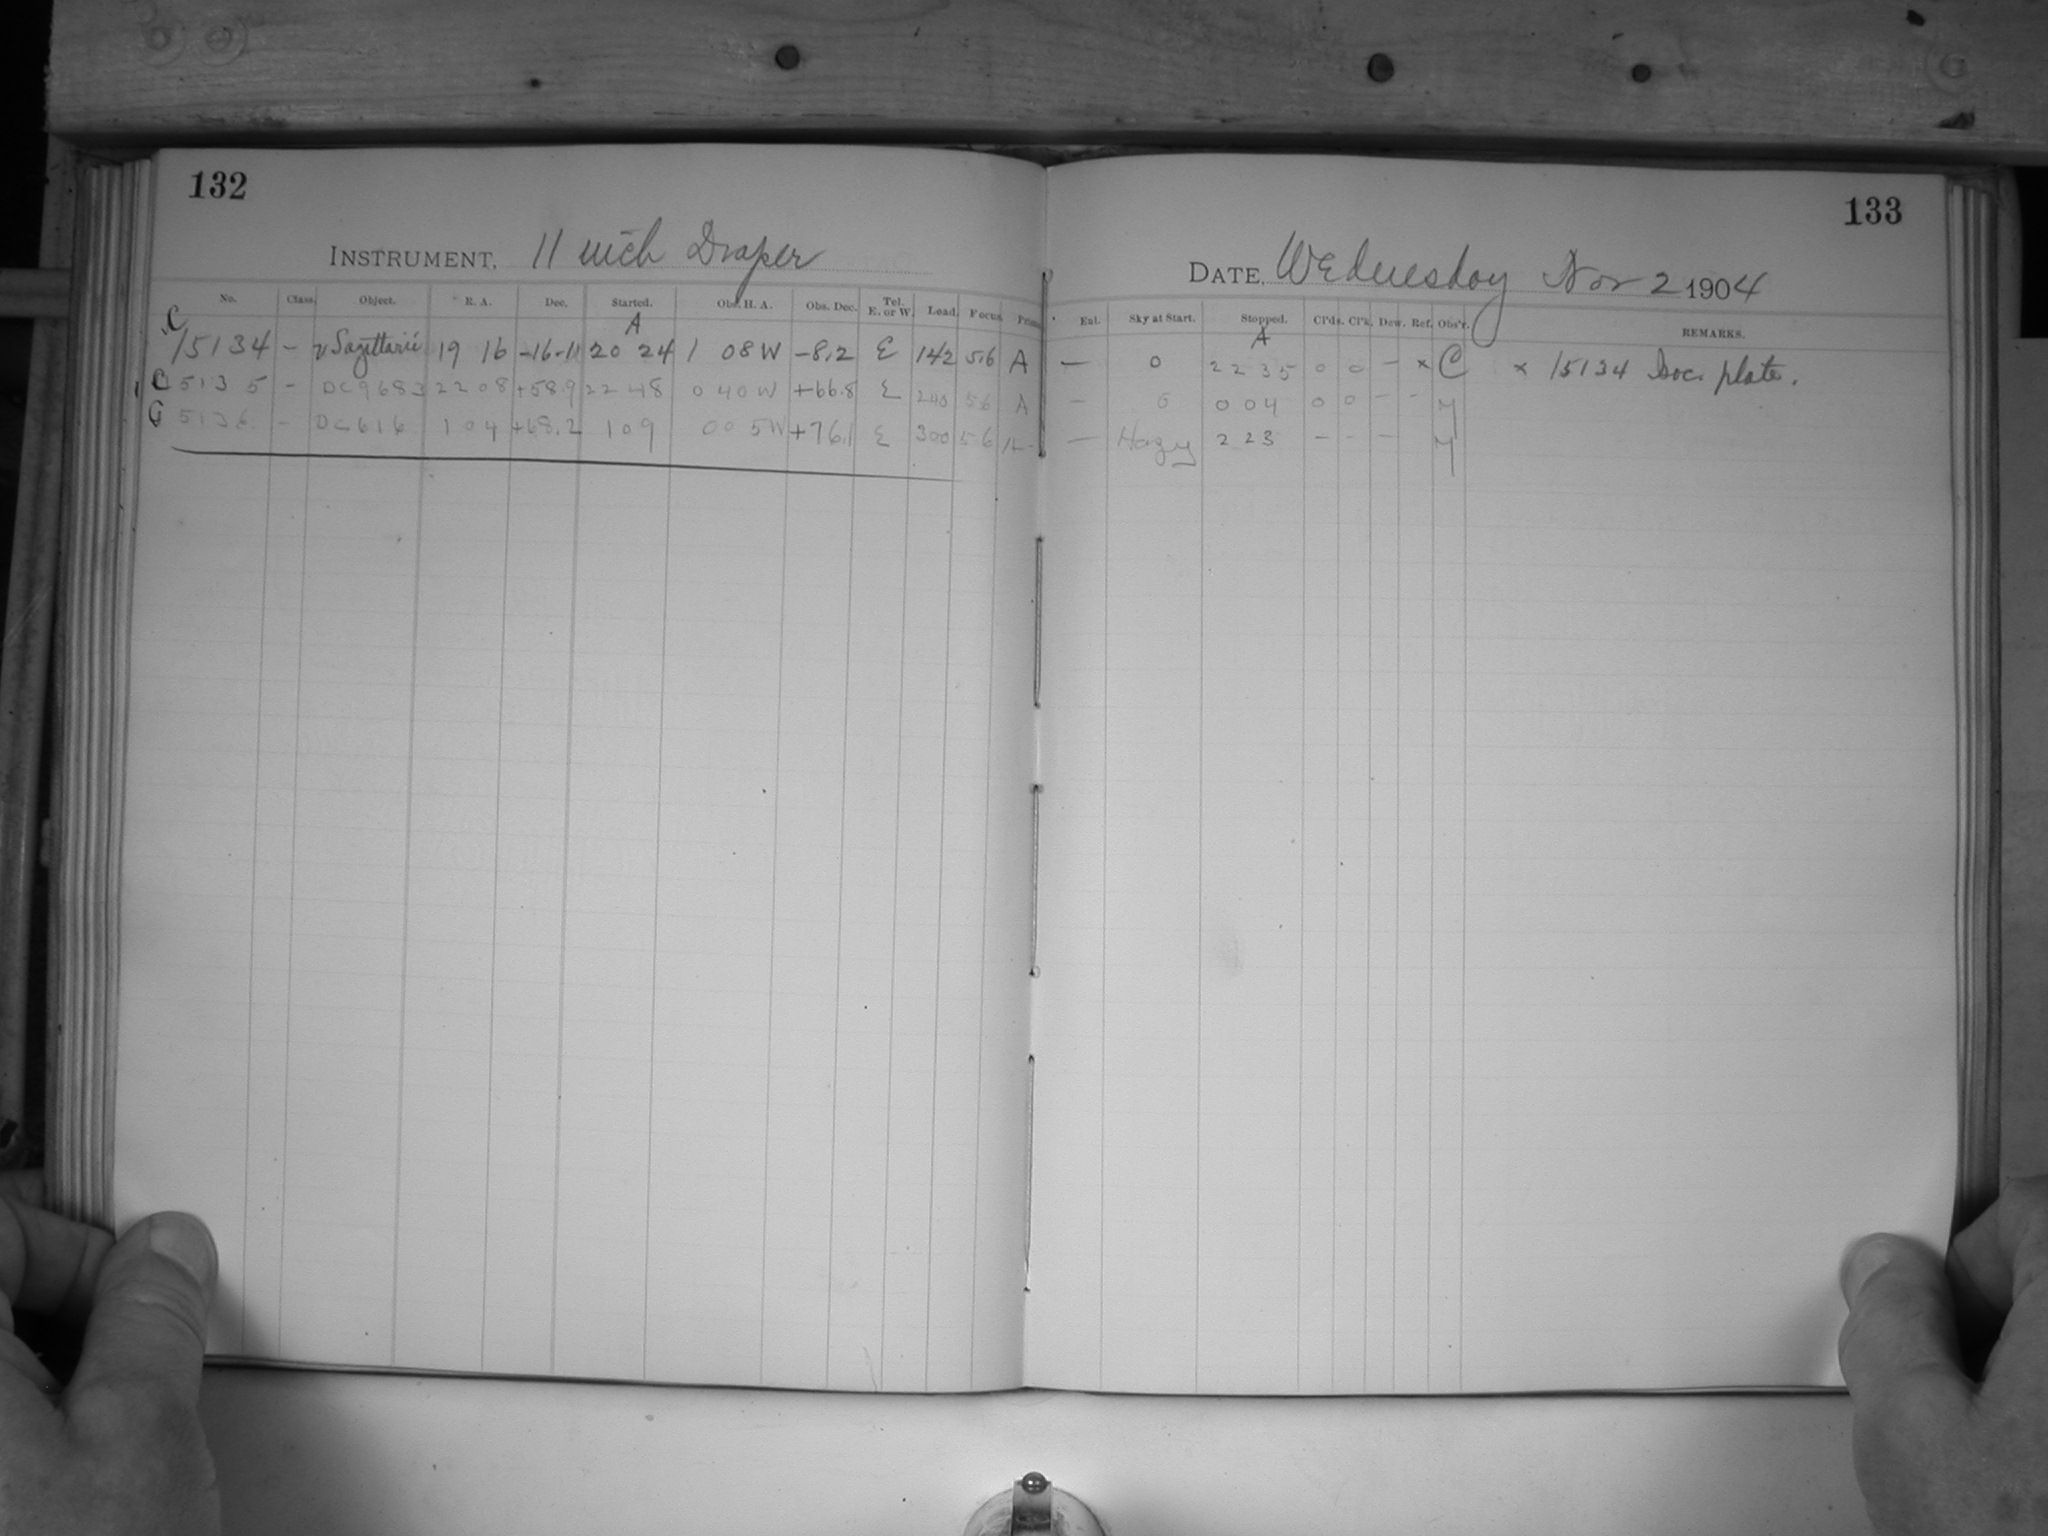 132
INSTRUMENT, 11 inch Draper
No. Class. Object. R. A. Dec. Started. Obs. H. A. Obs. Dec. Tel. E. or W. Load. Focus.
A
C 15134 – υ Sagittarii 19 16 -16-11 20 24 1 08 W -8.2 E 142 5.6 A
C 5135 – DC9683 22 08 +58.9 22 48 0 40 W +66.8 E 240 5.6 A
5136 – DC616 1 04 +68.2 1 09 0 05 W +76.1 E 300 5.6
133
DATE, Wednesday Nov 2 1904
Enl. Sky at Start. Stopped. Cl'ds. Cl'k. Dew. Ref. Obs'r. REMARKS.
A
– 0 22 35 0 0 – × C × 15134 Doc. plate.
– 0 0 04 0 0 – – M
– Hazy 2 23 – – – M